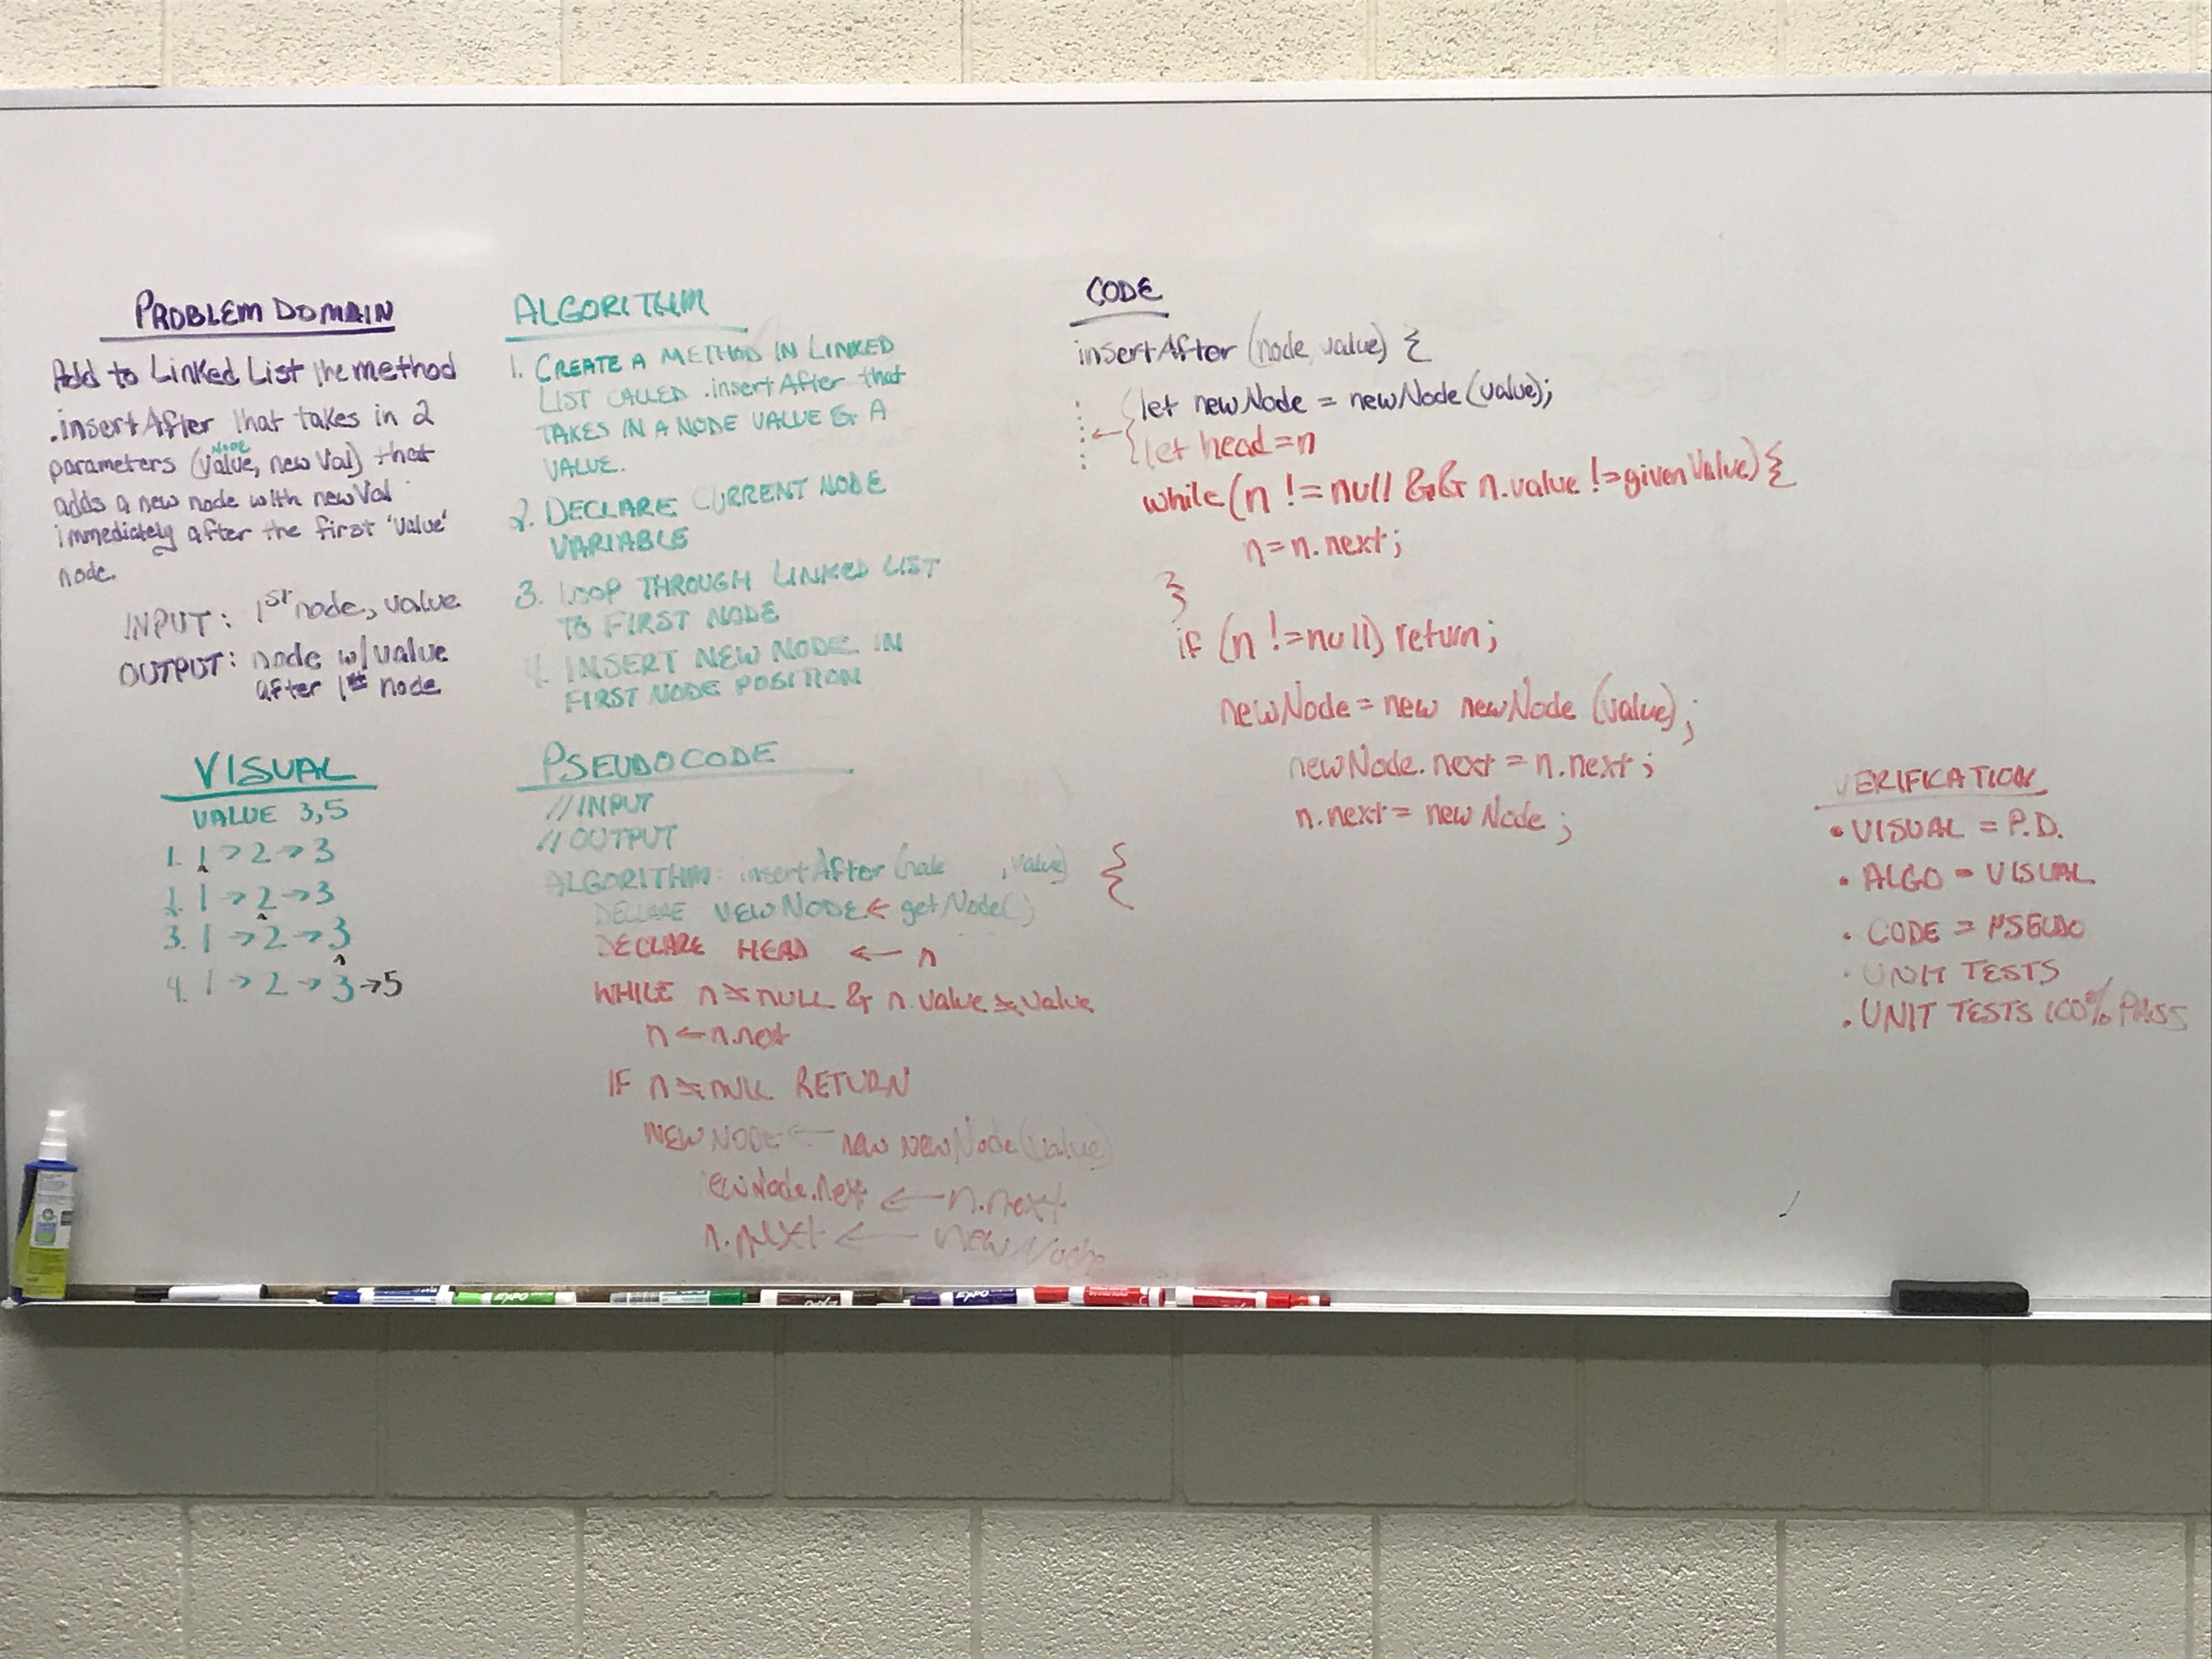 PROBLEM DOMAIN
Add to Linked List the method
.insertAfter that takes in 2
NODE
parameters (value, new Val) that
adds a new node with newVal
immediately after the first 'value'
node.
INPUT: 1st node, value
OUTPUT: node w/ value
after 1st node
VISUAL
VALUE 3,5
1. 1 → 2 → 3
2. 1 → 2 → 3
3. 1 → 2 → 3
4. 1 → 2 → 3 → 5
ALGORITHM
1. CREATE A METHOD IN LINKED
LIST CALLED .insertAfter that
TAKES IN A NODE VALUE & A
VALUE.
2. DECLARE CURRENT NODE
VARIABLE
3. LOOP THROUGH LINKED LIST
TO FIRST NODE
4. INSERT NEW NODE IN
FIRST NODE POSITION
PSEUDOCODE
//INPUT
//OUTPUT
ALGORITHM: insertAfter (node , value) {
DECLARE NEWNODE ← getNode()
DECLARE HEAD ← n
WHILE n ≠ NULL & n.value ≠ value
n ← n.next
IF n ≠ NULL RETURN
NEWNODE ← new newNode(value)
ewNode.next ← n.next
n.next ← newNode
CODE
insertAfter (node, value) {
let newNode = newNode(value);
let head = n
while(n != null && n.value != givenValue) {
n = n.next;
}
if (n != null) return;
newNode = new newNode (value);
newNode.next = n.next;
n.next = newNode;
VERIFICATION
• VISUAL = P.D.
• ALGO = VISUAL
• CODE = PSEUDO
• UNIT TESTS
• UNIT TESTS 100% PASS
EXPO